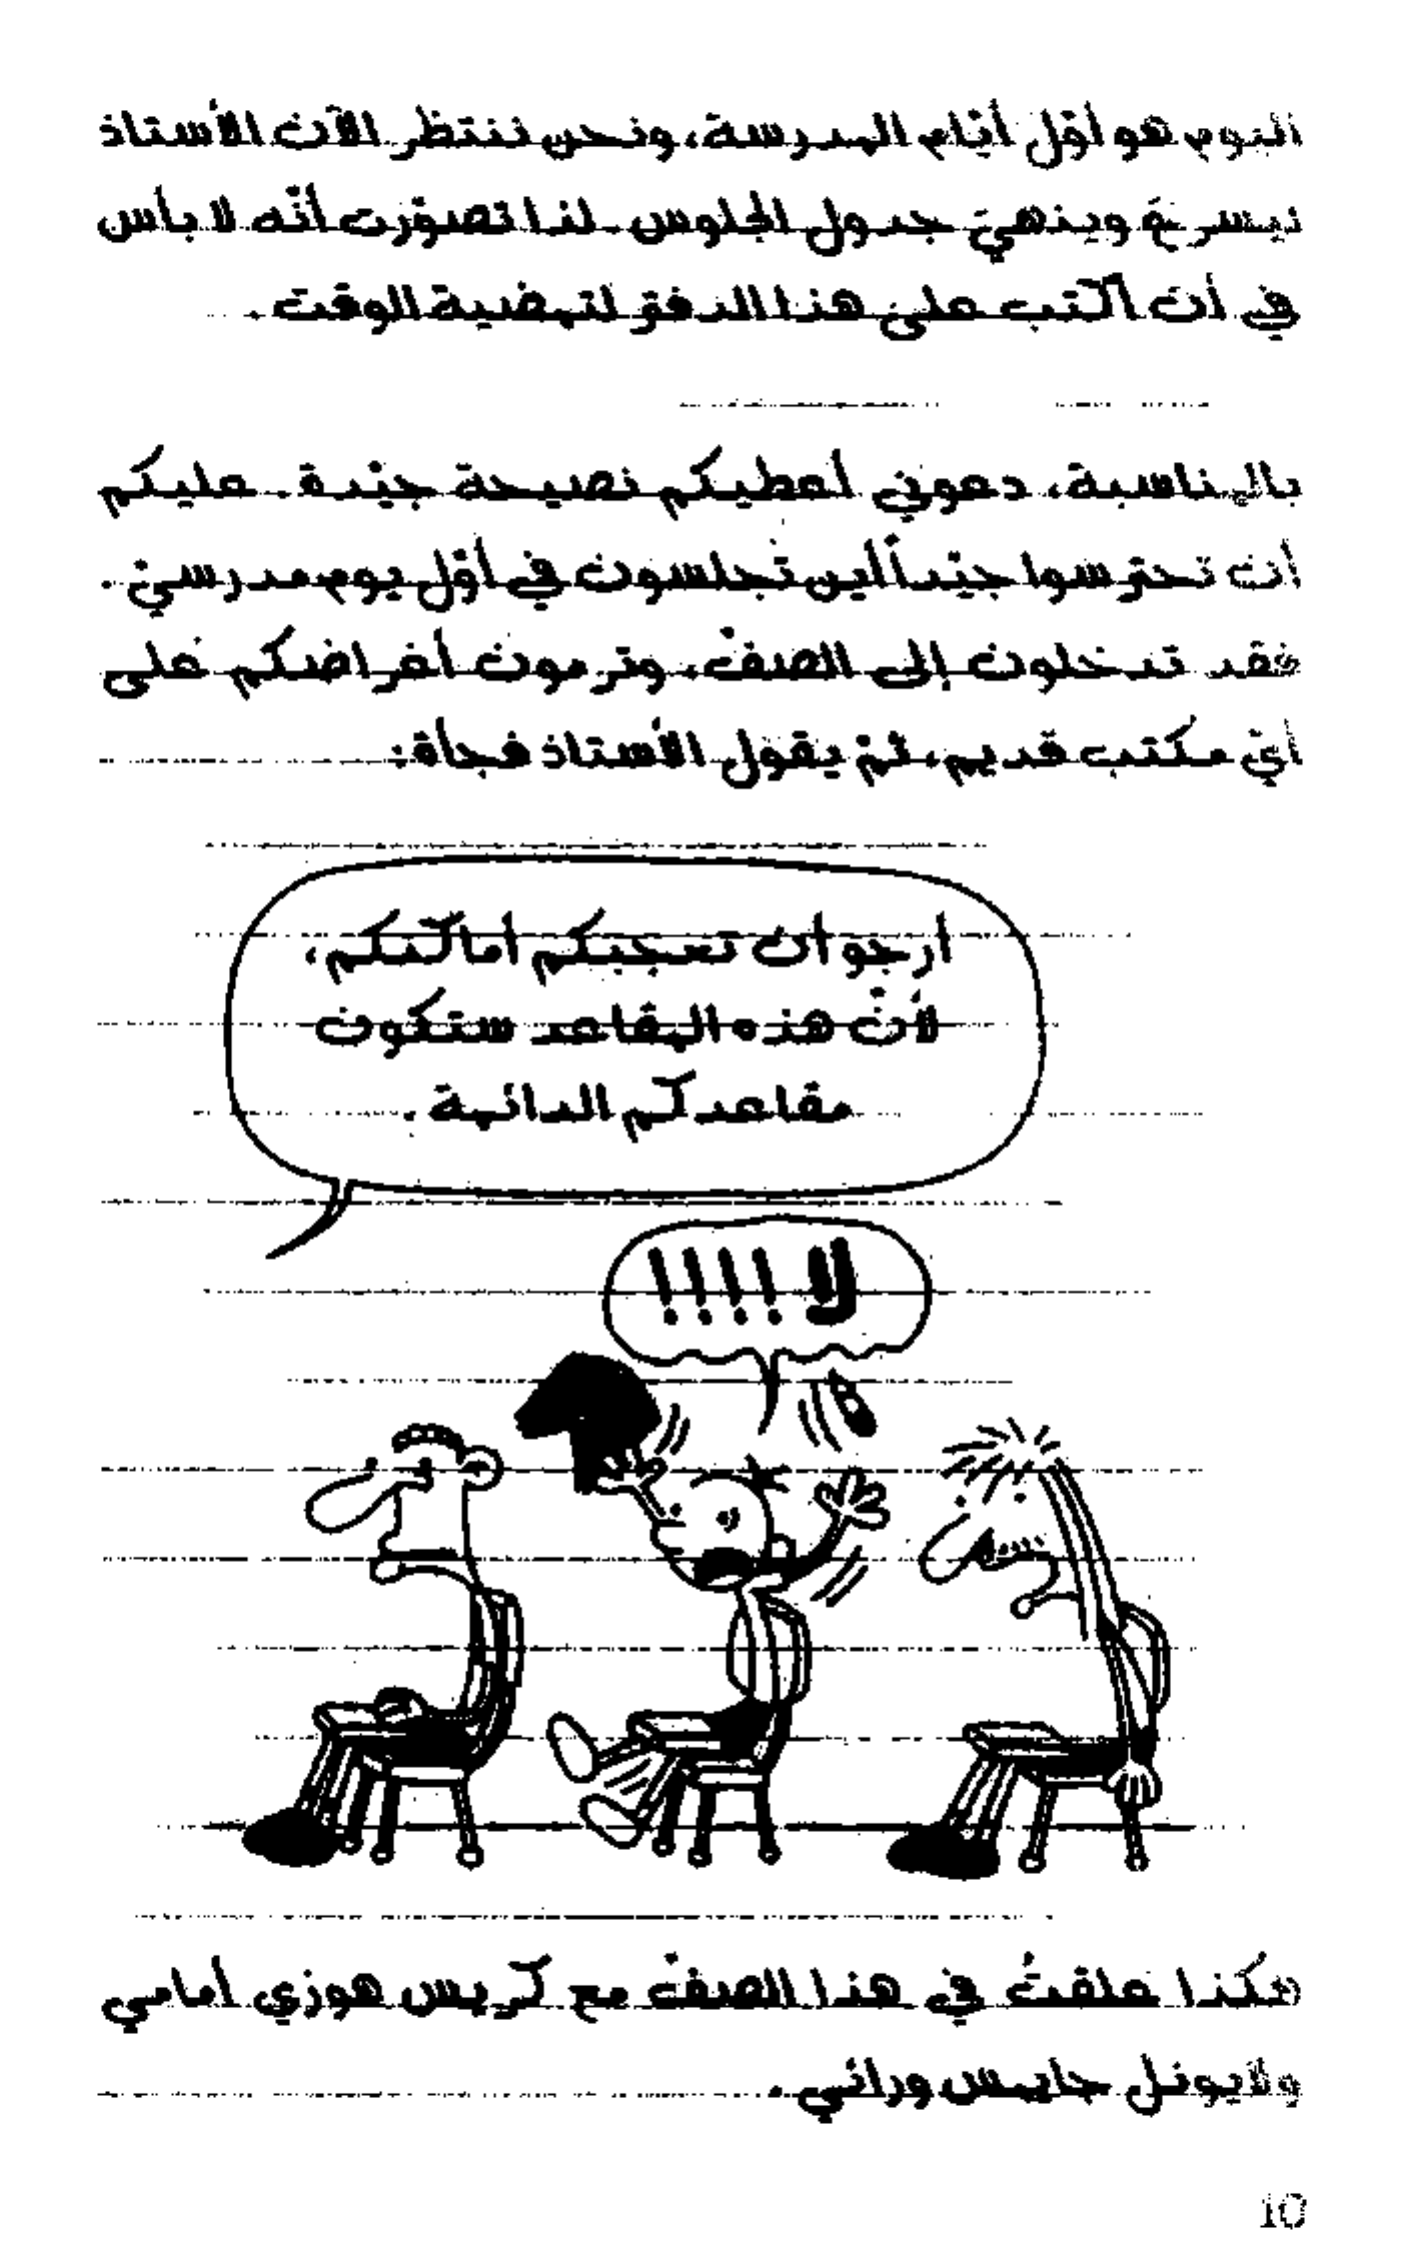 اليوم هو أوّل أيّام المدرسة، ونحن ننتظر الآن الأستاذ
ليسرعَ وينهيَ جدول الجلوس. لذا تصوّرت أنّه لا بأس
في أن أكتب على هذا الدفتر لتمضية الوقت.
بالمناسبة، دعوني أعطيكم نصيحة جيّدة. عليكم
أن تحترسوا جيّداً أين تجلسون في أوّل يوم مدرسيّ.
فقد تدخلون إلى الصفّ، وترمون أغراضكم على
أيّ مكتب قديم، ثمّ يقول الأستاذ فجأة:
أرجو أن تعجبكم أماكنكم،
لأنّ هذه المقاعد ستكون
مقاعدكم الدائمة.
لا !!!!
هكذا علقتُ في هذا الصفّ مع كريس هوزي أمامي
ولايونل جايمس ورائي.
10